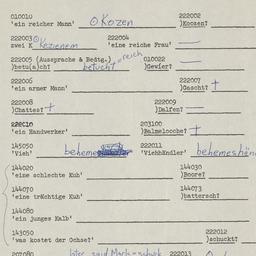 010010 222002
'ein reicher Mann' O Kozen )Koozen?
222003 222004
zwei K kezienem 'eine reiche Frau'
222005 (Aussprache & Bedtg.) 010022
)betu(a)ch? betucht = reich )Gewier?
222006 222007
'ein armer Mann' )Gasch? +
222008 222009
)Chattes? + )Dalfen? —
222010 203100
'ein Handwerker' )Balmeloche? +
145050 222011
'Vieh' beheme 'Viehhändler' behemeshän
144020 144030
'eine schlechte Kuh' )Boore?
144070 144073
'eine trächtige Kuh' )battersch?
144080
'ein junges Kalb'
143050 222012
'was kostet der Ochse?' )schuckt?
207080 222013